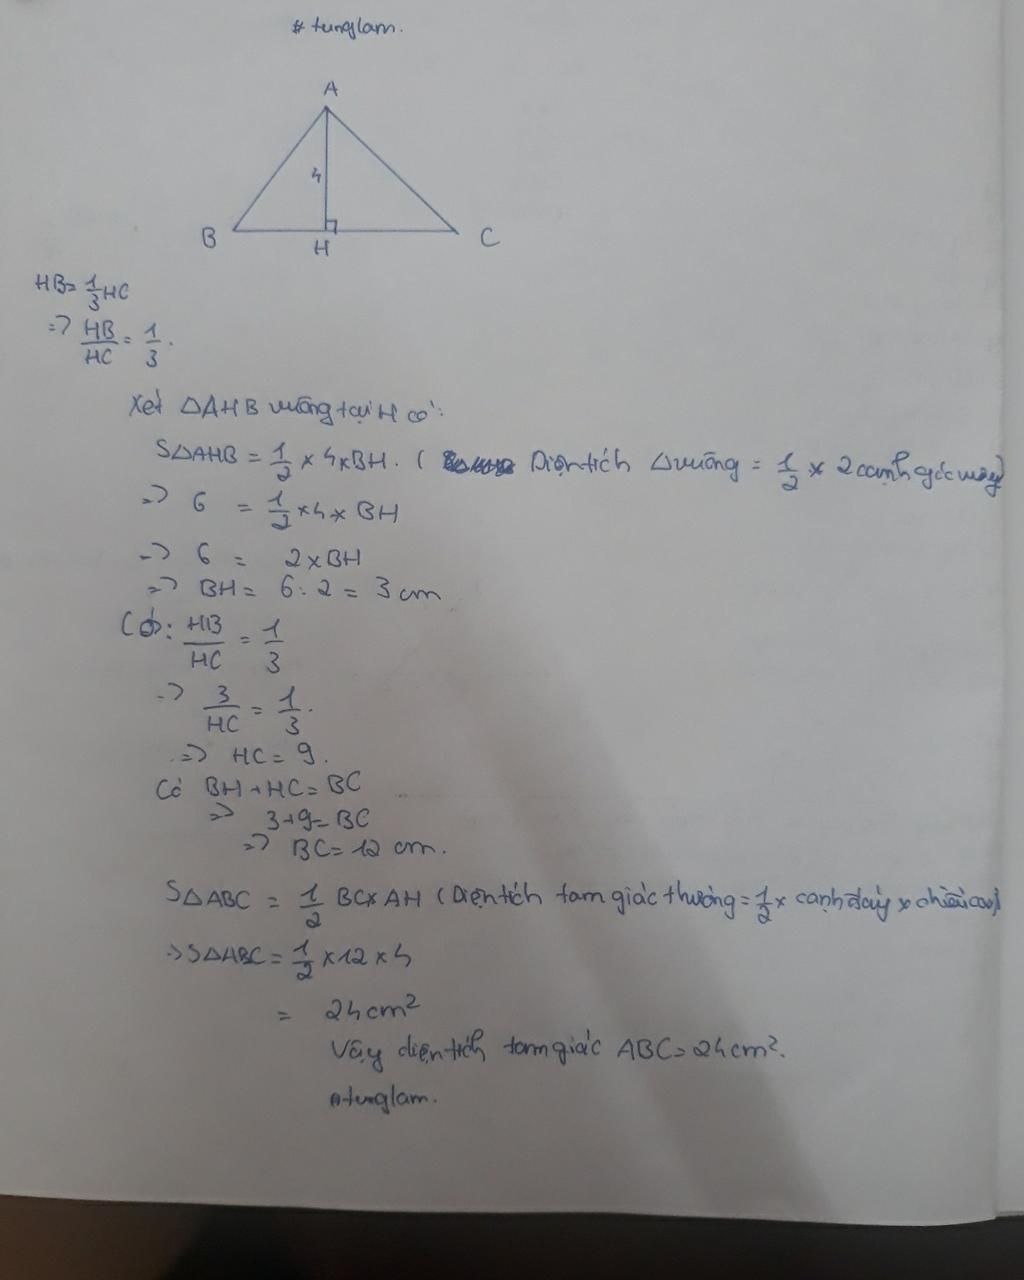 # tunglam.
A
4
B
H
C
HB = 1/3 HC
=> HB/HC = 1/3.
Xét △AHB vuông tại H có:
S△AHB = 1/2 x 4 x BH. ( Diện tích △vuông = 1/2 x 2 cạnh góc vuông)
=> 6 = 1/2 x 4 x BH
=> 6 = 2 x BH
=> BH = 6 : 2 = 3 cm
Có: HB/HC = 1/3
=> 3/HC = 1/3.
=> HC = 9.
Có BH + HC = BC
=> 3 + 9 = BC
=> BC = 12 cm.
S△ABC = 1/2 BC x AH (Diện tích tam giác thường = 1/2 x cạnh đáy x chiều cao)
=> S△ABC = 1/2 x 12 x 4
= 24 cm²
Vậy diện tích tam giác ABC = 24 cm².
#tunglam.